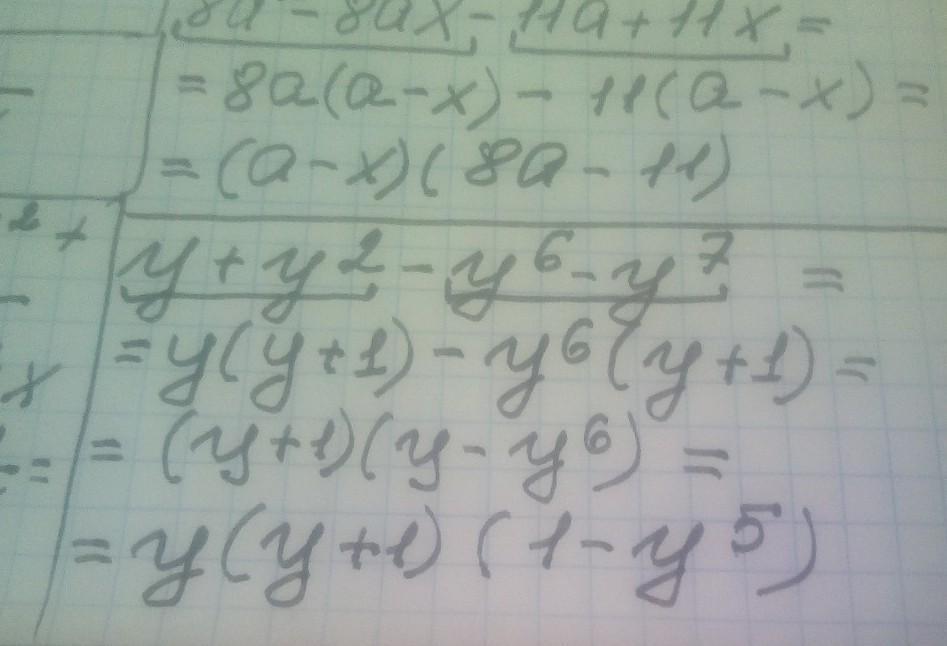 8a - 8ax - 11a + 11x =
= 8a(a - x) - 11(a - x) =
= (a - x)(8a - 11)
2 +
y + y² - y⁶ - y⁷ =
= y(y + 1) - y⁶(y + 1) =
x
= (y + 1)(y - y⁶) =
= y(y + 1)(1 - y⁵)